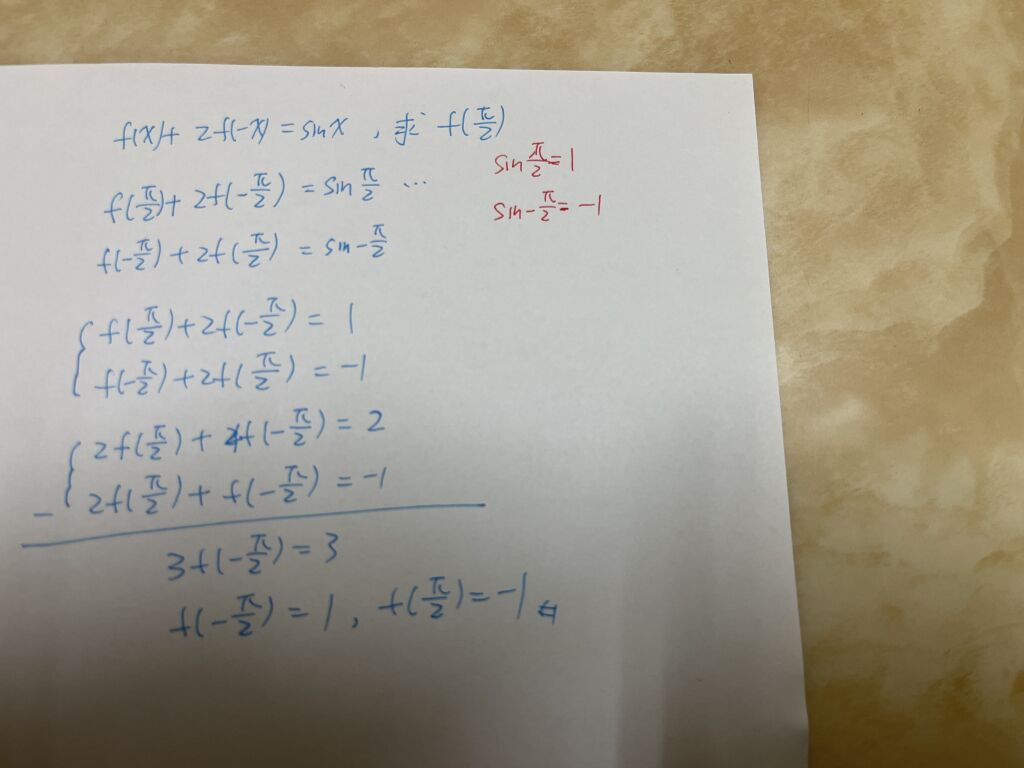 f(x)+ 2f(-x) = sinx , 求 f(π/2)
sin π/2 = 1
f(π/2)+ 2f(-π/2) = sin π/2 ...
sin-π/2 = -1
f(-π/2)+2f(π/2) = sin-π/2
{ f(π/2)+2f(-π/2) = 1
f(-π/2)+2f(π/2) = -1
{ 2f(π/2)+ 4f(-π/2) = 2
- 2f(π/2)+ f(-π/2) = -1
3f(-π/2) = 3
f(-π/2) = 1 , f(π/2) = -1